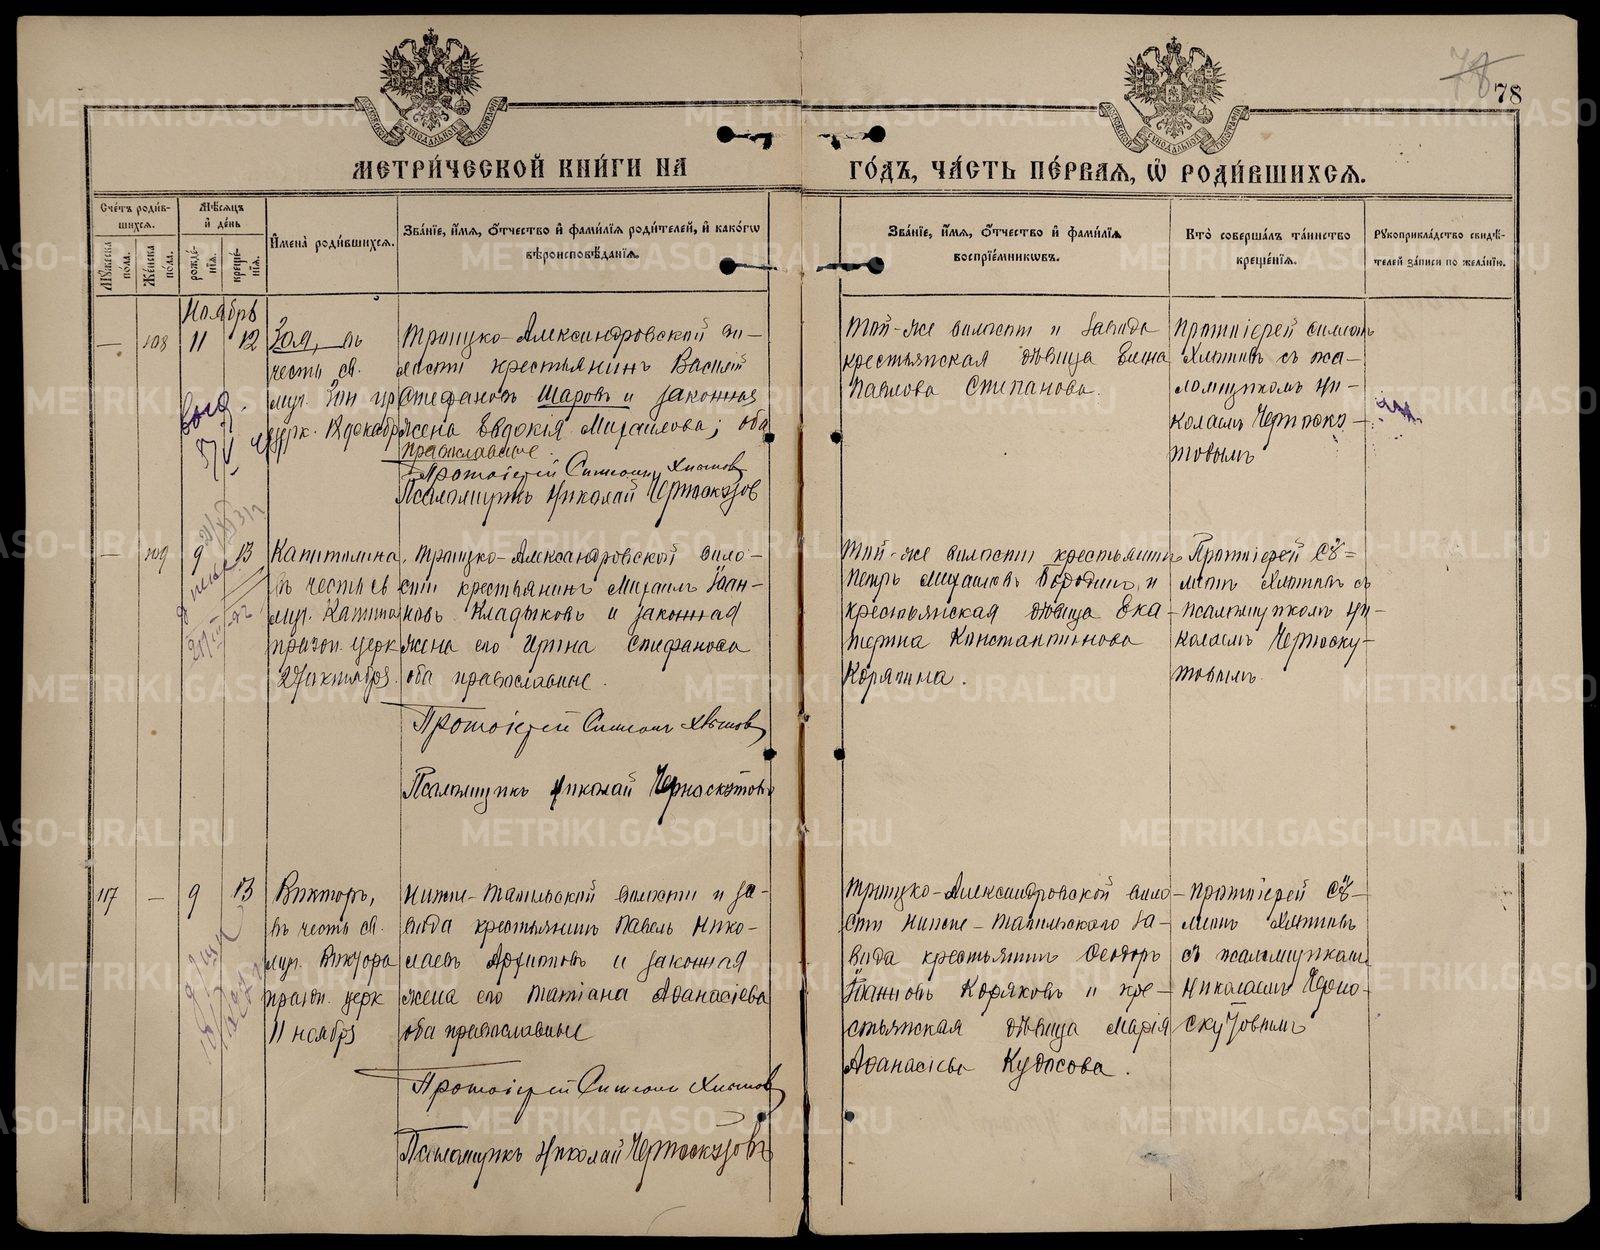 78
78
МЕТРИ́ЧЕСКОЙ КНИ́ГИ НА
ГО́ДЪ, ЧА́СТЬ ПЕ́РВАЯ, Ѡ РОДИ́ВШИХСЯ.
Сче́тъ роди́в-
шихся.
Му́жеска
по́ла.
Же́нска
по́ла.
Мѣ́сяцъ
и́ де́нь
рожде́-
нїя.
креще́-
нїя.
И҆мена̀ роди́вшихся.
Зва́нїе, и҆́мя, ѻ҆́тчество и҆ фами́лїя роди́телей, и҆ како́гѡ
вѣроисповѣ́данїя.
Зва́нїе, и҆́мя, ѻ҆́тчество и҆ фами́лїя
воспрїе́мникѡвъ.
Кто̀ соверша́лъ та́инство
креще́нїя.
Рꙋкоприкла́дство свидѣ́-
телей за́писи по жела́нїю.
Ноябрь
— 108 11 12
Зоя, въ
честь св.
муч. Зои
Троицко-Александровской во-
лости крестьянинъ Василій
Стефановъ Шаровъ и законная
жена Евдокія Михайлова; оба
православные.
Протоіерей Симеонъ Хлынов
Псаломщикъ Николай Черноскутов
Той-же волости и завода
крестьянская дѣвица Елена
Павлова Степанова.
Протоіерей Симеонъ
съ пса-
ломщикомъ Ни-
колаемъ Черноску-
товымъ
— 109 9 13
Капитолина,
въ честь св
муч. Капито
празд. церк
27 октября.
Троицко-Александровской воло-
сти крестьянинъ Михаилъ Іоан-
новъ Кладиковъ и законная
жена его Ирина Стефанова
оба православные.
Протоіерей Симеонъ Хлынов
Псаломщикъ Николай Черноскутовъ
Той-же волости крестьянинъ
Петръ Михайловъ Бородинъ и
крестьянская дѣвица Ека-
терина Константинова
Корякина.
Протоіерей Сѵ-
меонъ съ
псаломщикомъ Ни-
колаемъ Черноску-
товымъ
117 — 9 13
Викторъ,
въ честь св.
муч. Виктора
празд. церк
11 ноября
Нижне-Тагильской волости и за-
вода крестьянинъ Павелъ Нико-
лаевъ Архиповъ и законная
жена его Татіана Аѳанасіева
оба православные
Протоіерей Симеонъ Хлынов
Псаломщикъ Николай Черноскутовъ
Троицко-Александровской воло-
сти Нижне-Тагильского за-
вода крестьянинъ Ѳеодоръ
Іоанновъ Коряковъ и кре-
стьянская дѣвица Марія
Аѳанасіева Кудосова.
Протоіерей Сѵ-
меонъ
съ псаломщикомъ
Николаемъ Черно-
скутовымъ
METRIKI.GASO-URAL.RU